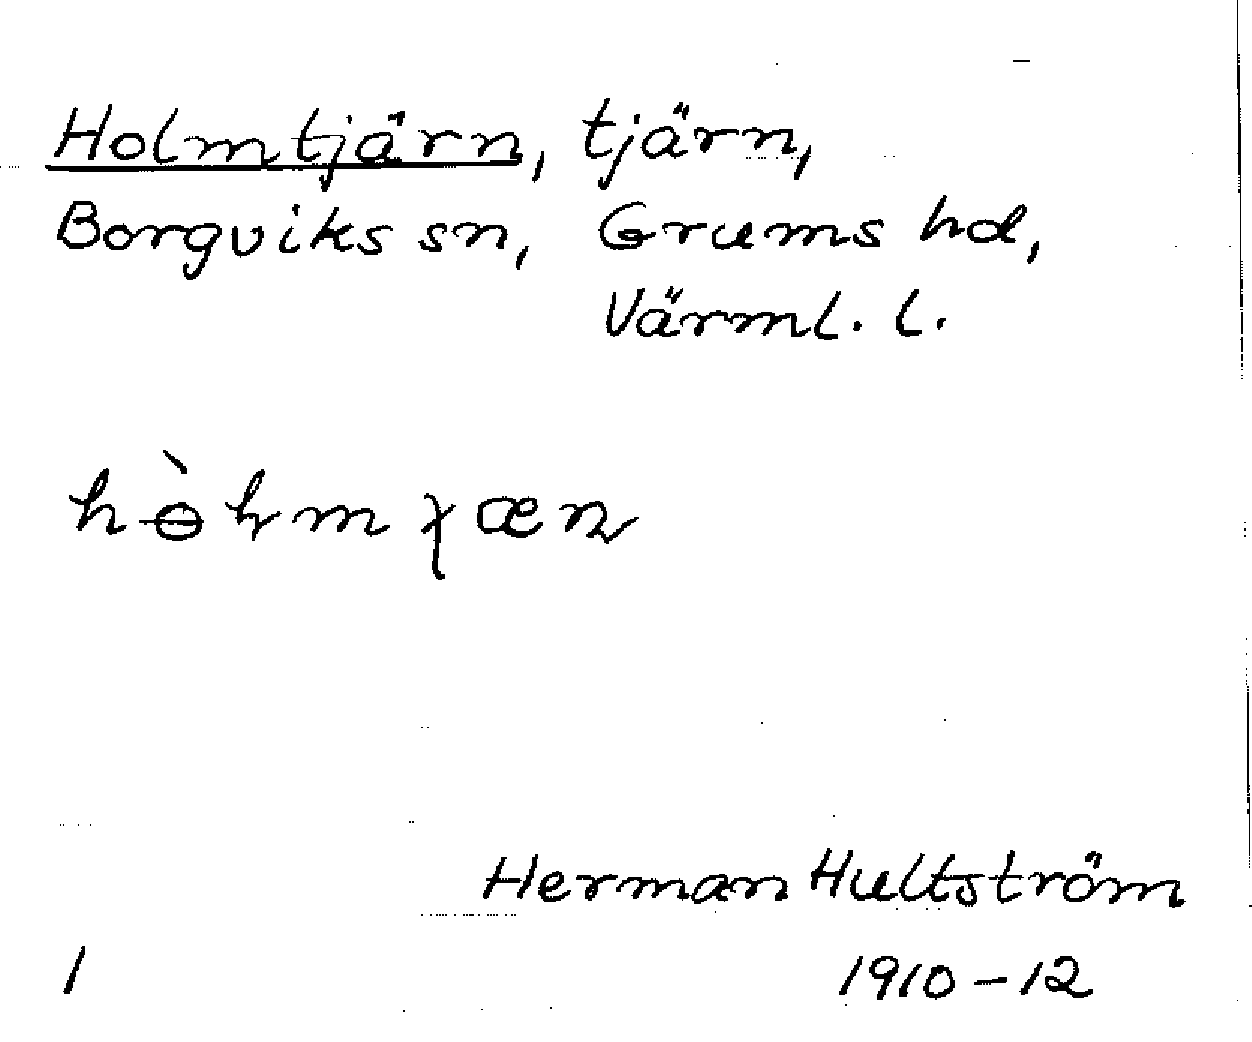 Holmtjärn, tjärn,
Borgviks sn, Grums hd,
Värml. l.
Herman Hultström
1 1910-12